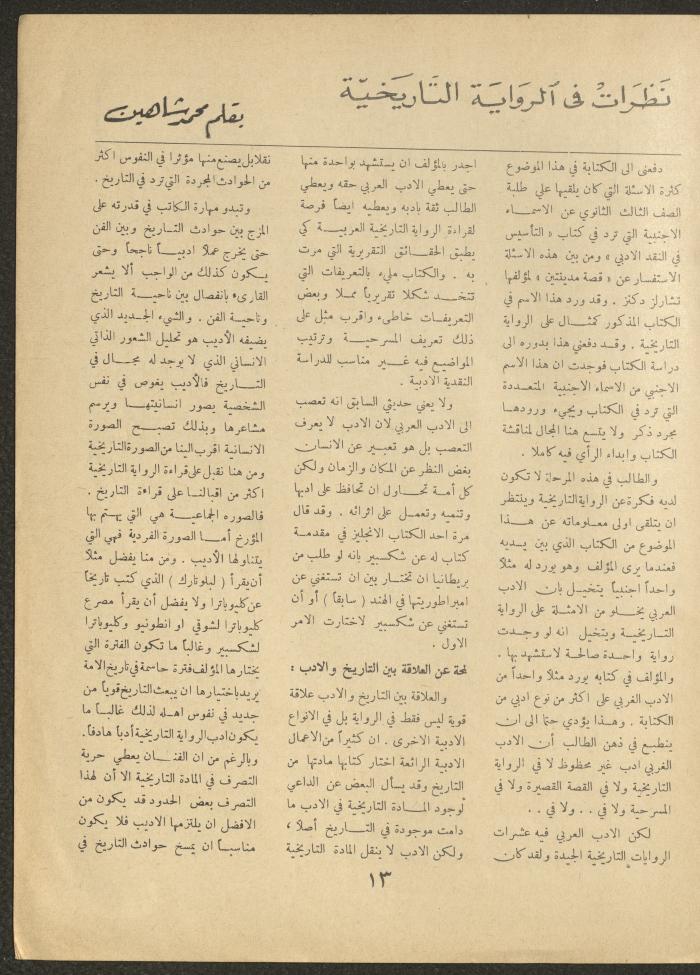 نَظَرَاتٌ في الرِوَايَة التَارِيَخيّة
بقلم محمد شاهين
دفعني الى الكتابة في هذا الموضوع
كثرة الاسئلة التي كان يلقيها علي طلبة
الصف الثالث الثانوي عن الاسماء
الاجنبية التي ترد في كتاب « التأسيس
في النقد الادبي » ومن بين هذه الاسئلة
الاستفسار عن « قصة مدينتين » لمؤلفها
تشارلز دكنز . وقد ورد هذا الاسم في
الكتاب المذكور كمثال على الرواية
التاريخية . وقد دفعني هذا بدوره الى
دراسة الكتاب فوجدت ان هذا الاسم
الاجنبي من الاسماء الاجنبية المتعددة
التي ترد في الكتاب ويجيء ورودها
مجرد ذكر ولا يتسع هنا المجال لمناقشة
الكتاب وابداء الرأي فيه كاملا .
والطالب في هذه المرحلة لا تكون
لديه فكرة عن الرواية التاريخية وينتظر
ان يتلقى اولى معلوماته عن هذا
الموضوع من الكتاب الذي بين يديه
فعندما يرى المؤلف وهو يورد له مثلاً
واحداً اجنبياً يتخيل بان الادب
العربي يخلو من الامثلة على الرواية
التاريخية ويتخيل انه لو وجدت
رواية واحدة صالحة لاستشهد بها .
والمؤلف في كتابه يورد مثلاً واحداً من
الادب الغربي على اكثر من نوع ادبي من
الكتابة . وهذا يؤدي حتما الى ان
ينطبع في ذهن الطالب أن الادب
العربي ادب غير محظوظ لا في الرواية
التاريخية ولا في القصة القصيرة ولا في
المسرحية ولا في . . ولا في . .
لكن الادب العربي فيه عشرات
الروايات التاريخية الجيدة ولقد كان
اجدر بالمؤلف ان يستشهد بواحدة منها
حتى يعطي الادب العربي حقه ويعطي
الطالب ثقة بادبه ويعطيه ايضاً فرصة
لقراءة الرواية التاريخية العربية كي
يطبق الحقائق التقريرية التي مرت
به . والكتاب مليء بالتعريفات التي
تتخذ شكلا تقريرياً مملا وبعض
التعريفات خاطىء واقرب مثل على
ذلك تعريف المسرحية وترتيب
المواضيع فيه غير مناسب للدراسة
النقدية الادبية .
ولا يعني حديثي السابق انه تعصب
الى الادب العربي لان الادب لا يعرف
التعصب بل هو تعبير عن الانسان
بغض النظر عن المكان والزمان ولكن
كل أمة تحاول ان تحافظ على ادبها
وتنميه وتعمل على اثرائه . وقد قال
مرة احد الكتاب الانجليز في مقدمة
كتاب له عن شكسبير بانه لو طلب من
بريطانيا ان تختار بين ان تستغني عن
امبراطوريتها في الهند ( سابقاً ) أو أن
تستغني عن شكسبير لاختارت الامر
الاول .
لمحة عن العلاقة بين التاريخ والادب :
والعلاقة بين التاريخ والادب علاقة
قوية ليس فقط في الرواية بل في الانواع
الادبية الاخرى . ان كثيراً من الاعمال
الادبية الرائعة اختار كتابها مادتها من
التاريخ وقد يسأل البعض عن الداعي
لوجود المادة التاريخية في الادب ما
دامت موجودة في التاريخ أصلاً ،
ولكن الادب لا ينقل المادة التاريخية
نقلا بل يصنع منها مؤثرا في النفوس اكثر
من الحوادث المجردة التي ترد في التاريخ .
وتبدو مهارة الكاتب في قدرته على
المزج بين حوادث التاريخ وبين الفن
حتى يخرج عملاً ادبياً ناجحاً وحتى
يكون كذلك من الواجب ألا يشعر
القارىء بانفصال بين ناحية التاريخ
وناحية الفن . والشيء الجديد الذي
يضيفه الأديب هو تحليل الشعور الذاتي
الانساني الذي لا يوجد له مجال في
التاريخ فالأديب يغوص في نفس
الشخصية يصور انسانيتها ويرسم
مشاعرها وبذلك تصبح الصورة
الانسانية اقرب الينا من الصورة التاريخية
ومن هنا نقبل على قراءة الرواية التاريخية
اكثر من اقبالنا على قراءة التاريخ .
فالصوره الجماعية هي التي يهتم بها
المؤرخ أما الصورة الفردية فهي التي
يتناولها الأديب . ومن منا يفضل مثلاً
أن يقرأ ( لبلوتارك ) الذي كتب تاريخاً
عن كليوباترا ولا يفضل أن يقرأ مصرع
كليوباترا لشوقي او انطونيو وكليوباترا
لشكسبير وغالباً ما تكون الفترة التي
يختارها المؤلف فترة حاسمة في تاريخ الامة
يريد باختيارها ان يبعث التاريخ قوياً من
جديد في نفوس اهله لذلك غالباً ما
يكون ادب الرواية التاريخية أدباً هادفاً .
وبالرغم من ان الفنان يعطي حرية
التصرف في المادة التاريخية الا أن لهذا
التصرف بعض الحدود قد يكون من
الافضل ان يلتزمها الاديب فلا يكون
مناسباً ان يمسخ حوادث التاريخ في
١٣